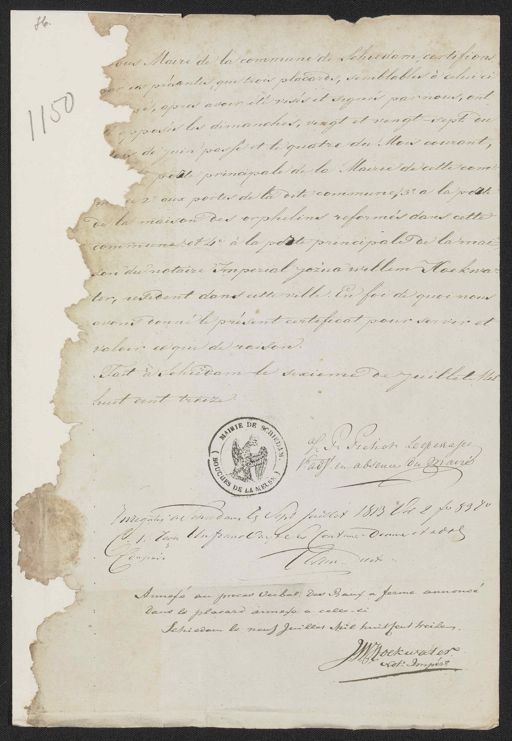 86.
1150
ous Maire de la commune de Schiedam, certifions
par ces présentes, que trois placares, semblables à celui ci
après avoir été visés et signés par nous, ont
apposés les dimanches, vingt et vingt-sept du
de juin passé et le quatre du Mois courant,
porte principale de la Mairie de cette com
2° aux portes de la dite commune, 3° a la porte
de la maison des orphelins reformés dans cette
commune et 4° à la porte principale de la mai
son du notaire Imperial Willem Hoekwa
ter, resident dans cette ville. En foi de quoi nous
avons donné le présent certificat pour servir et
valoir ce que de raison.
Fait à Schiedam le sixieme de juillet Mil
huit cent treize
MAIRIE DE SCHIEDAM.
(BOUCHES DE LA MEUSE)
en absence du Maire
Schiedam le Sept juillet 1813
un franc
Annexé au proces verbal des Baux a ferme annoncé
dans le placard annexe a celes-ci
Schiedam le neuf Juillet Mil huit cent treize.
JWHoekwater
Not: Impér: